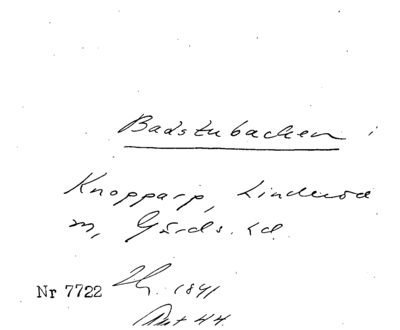 Badstubacken i
Knopparp, Linderöd
m, Gärds. hd.
Nr 7722 1841
Akt 44.